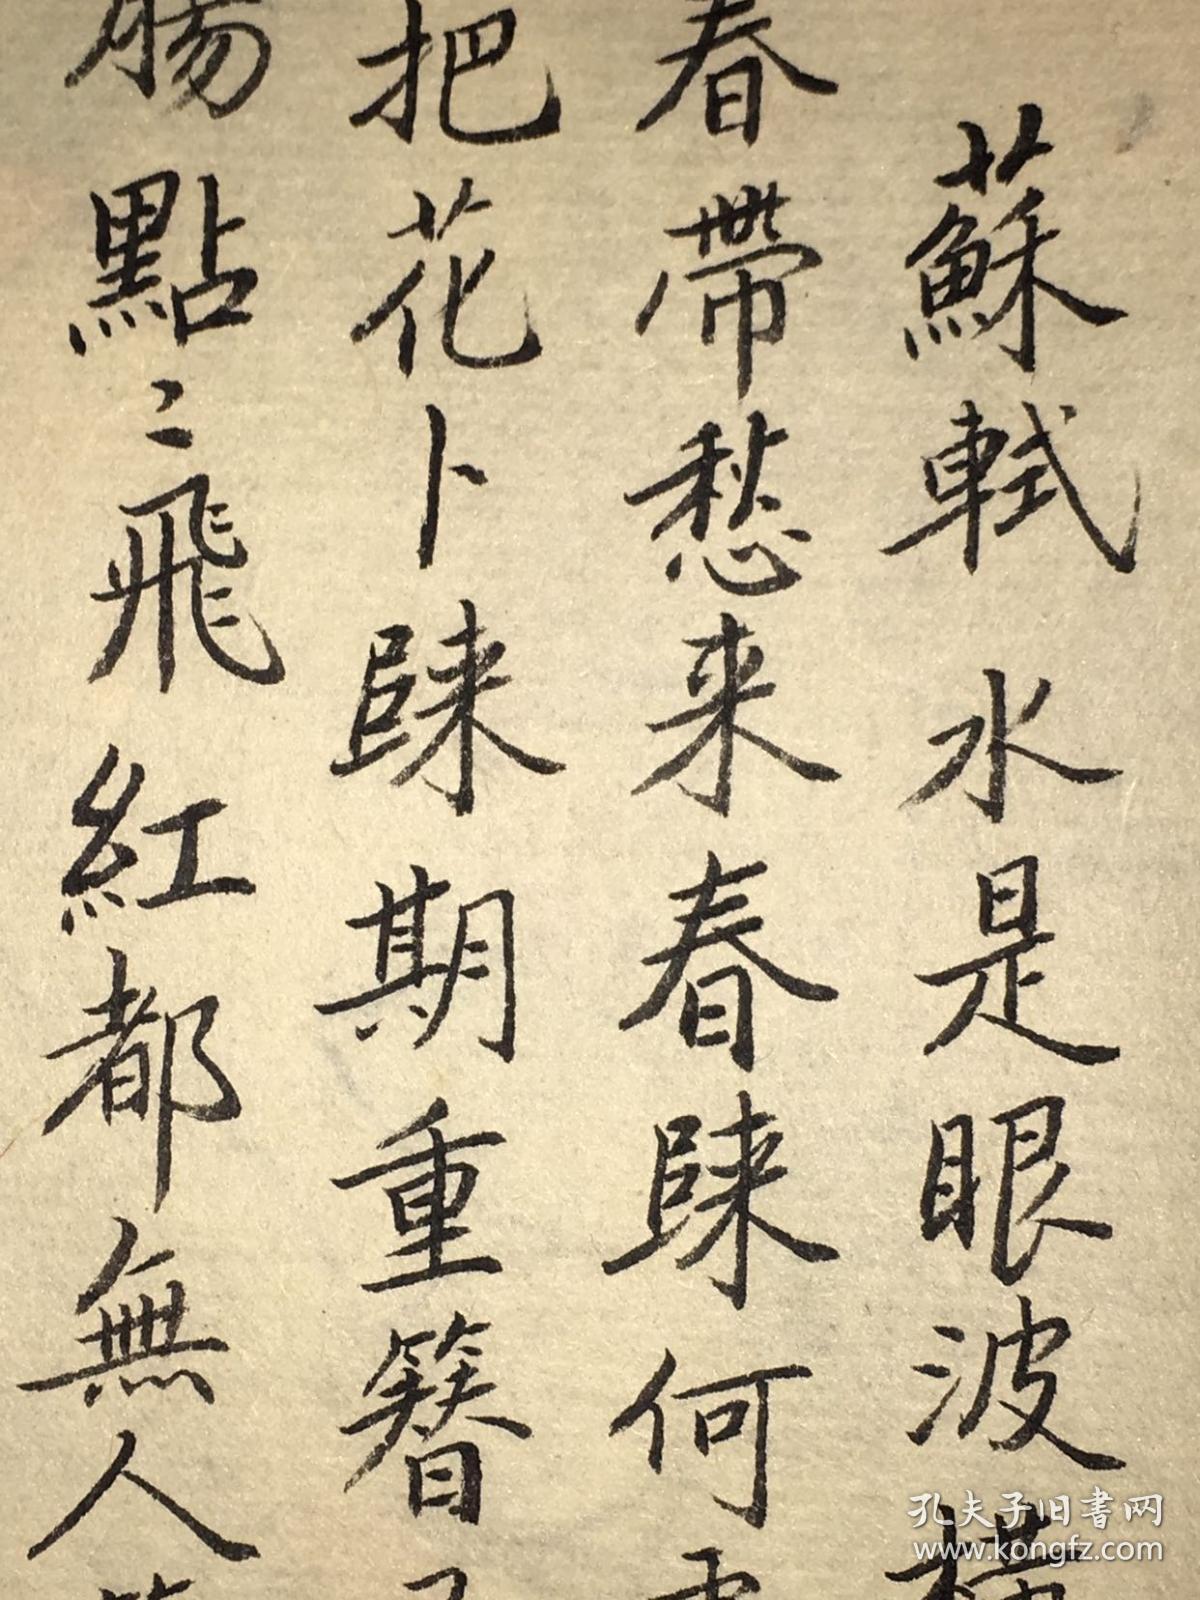 蘇軾 水是眼波横
春帶愁来春歸何
把花卜歸期重簪
腸點〻飛紅都無人
孔夫子旧書网
www.kongfz.com